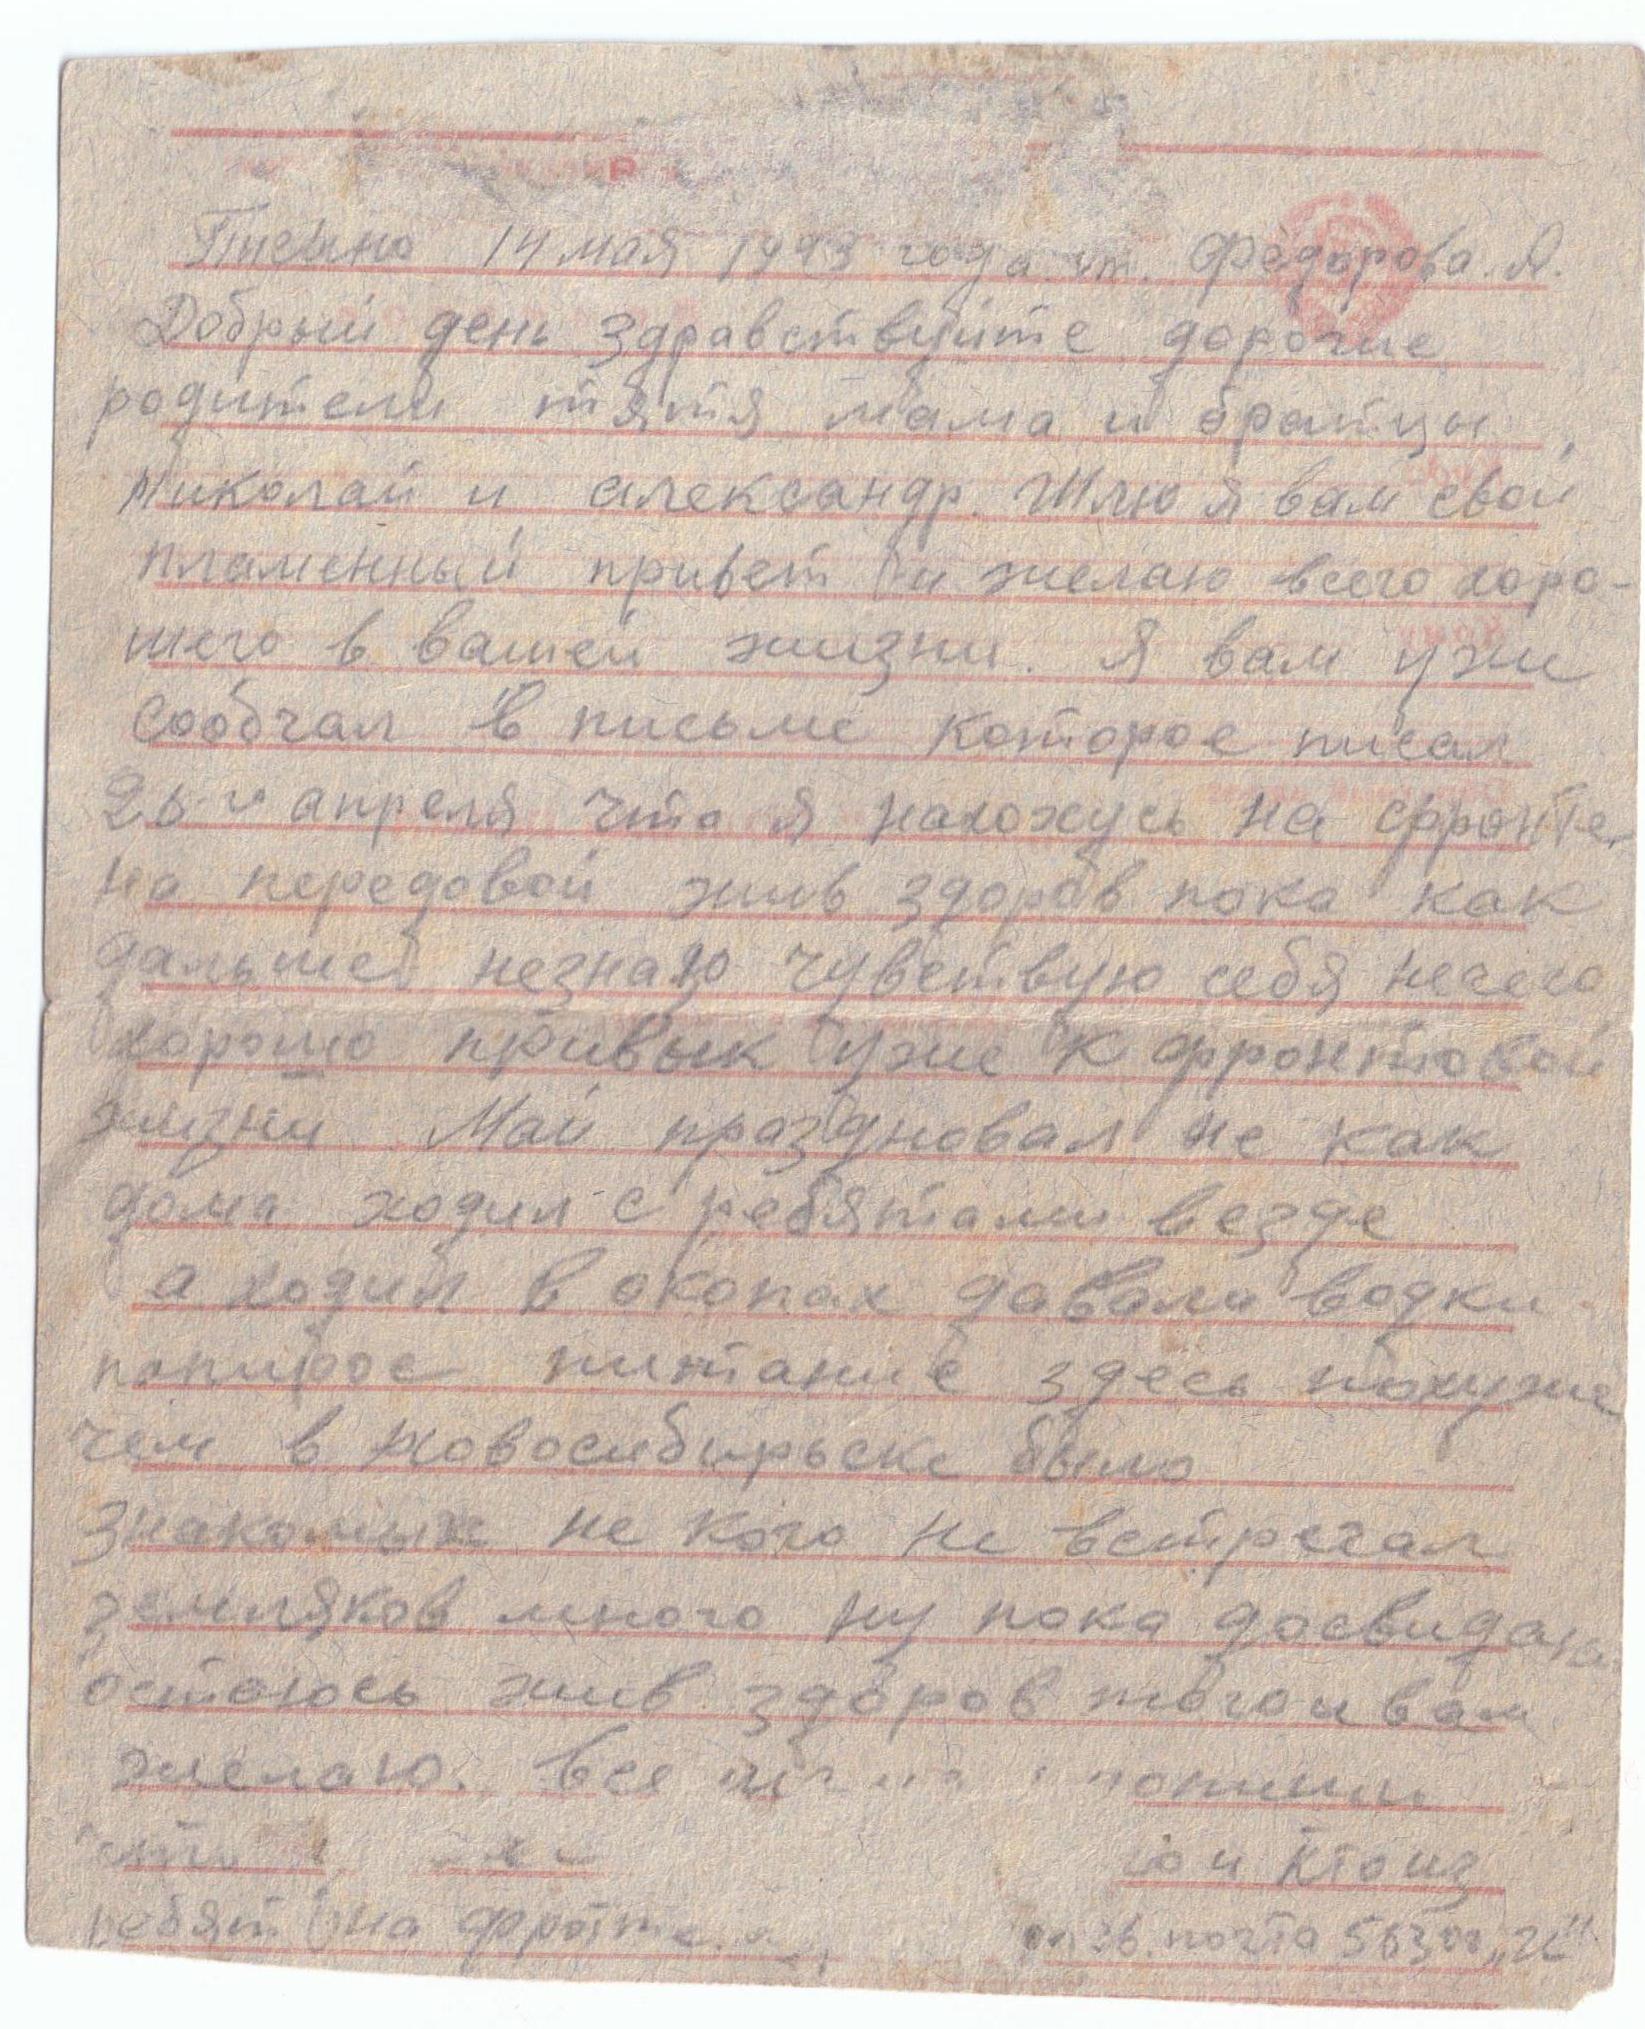 Писано 14 мая 1943 года от. Федорова. А.
Добрый день здравствуйте дорогие
родители тятя мама и братцы,
Николай и александр. Шлю я вам свой
пламенный привет и желаю всего хоро-
шего в вашей жизни. Я вам уже
сообчал в письме которое писал
26-го апреля что я нахожусь на фронте
на передовой жив здоров пока как
дальше незнаю чувствую себя нечего
хорошо привык уже к фронтовой
жизни Май праздновал не как
дома ходил с ребятами везде
а ходил в окопах давали водки
попирос питание здесь похуже
чем в Новосибирьске было
Знакомых не кого не встречал
земляков много ну пока досвидания
остаюсь жив здоров того и вам
желаю. Все
и кто из
ребят на фронте. почта